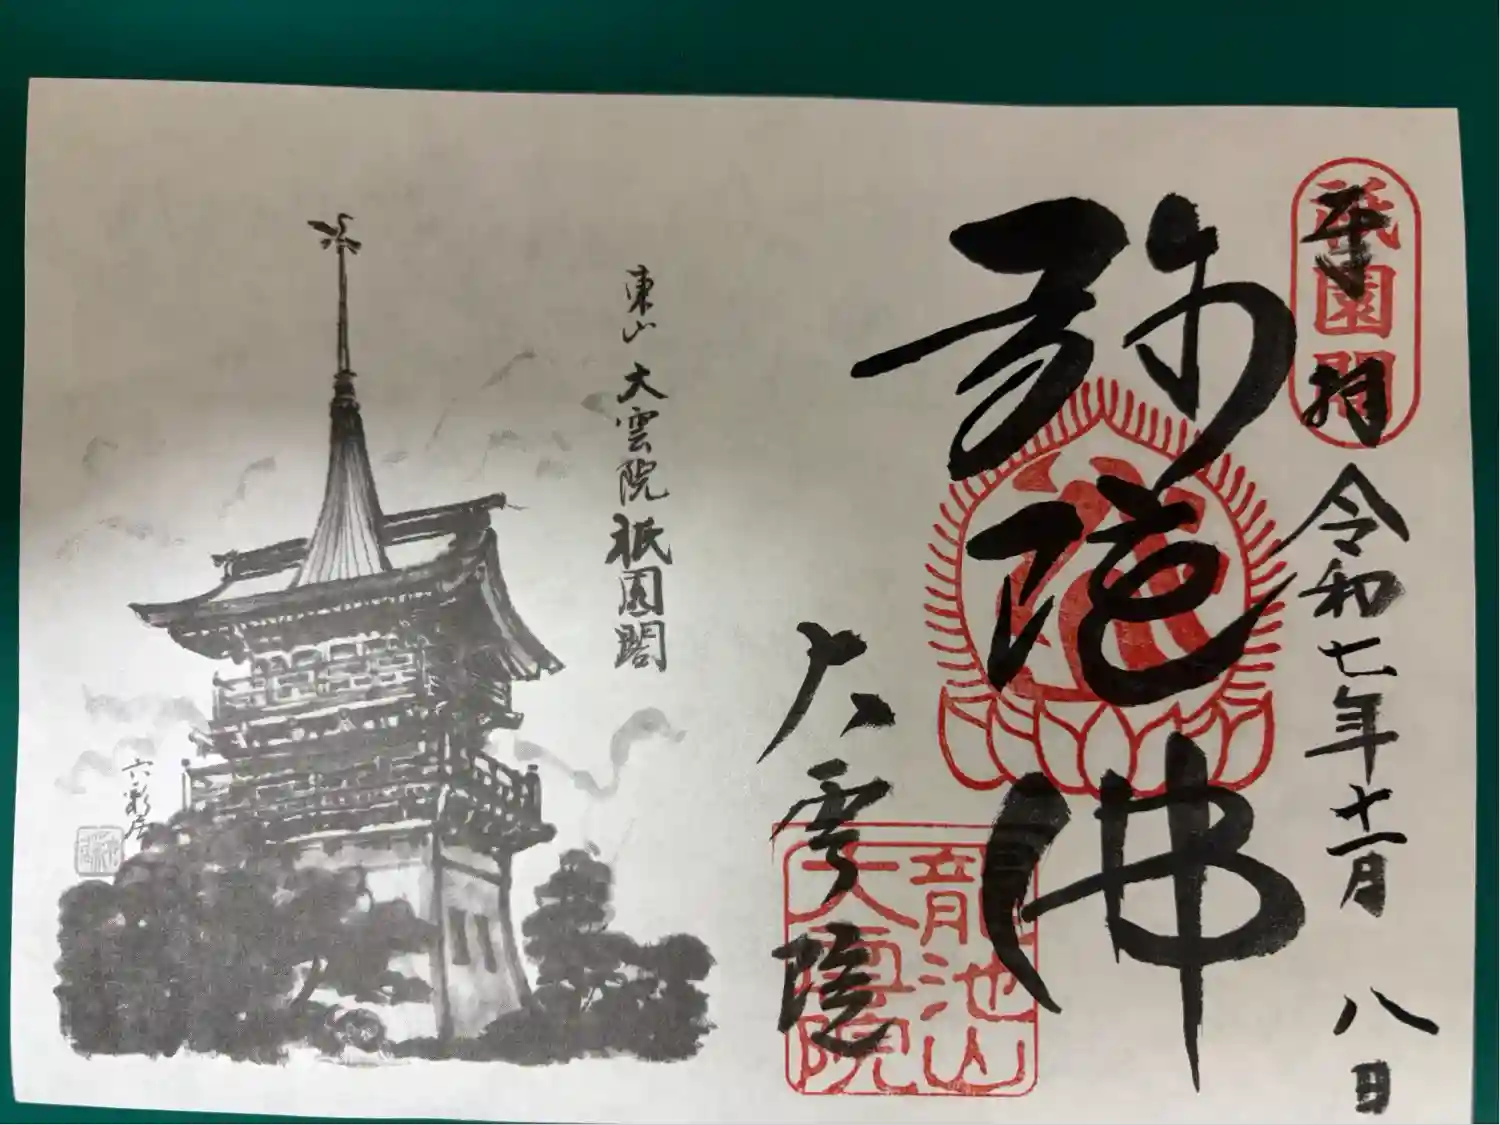 祇園閣
奉拝
令和七年十一月 八日
弥陀佛
大雲院
龍池山
大雲院
東山 大雲院 祇園閣
六彩居